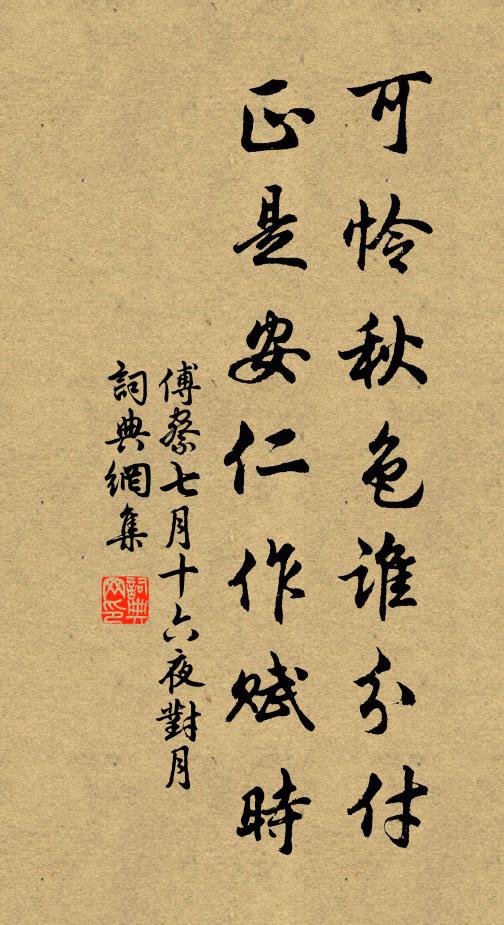 可怜秋色谁分付
正是安仁作賦時
傅察七月十六夜對月
詞典網集
詞典網印